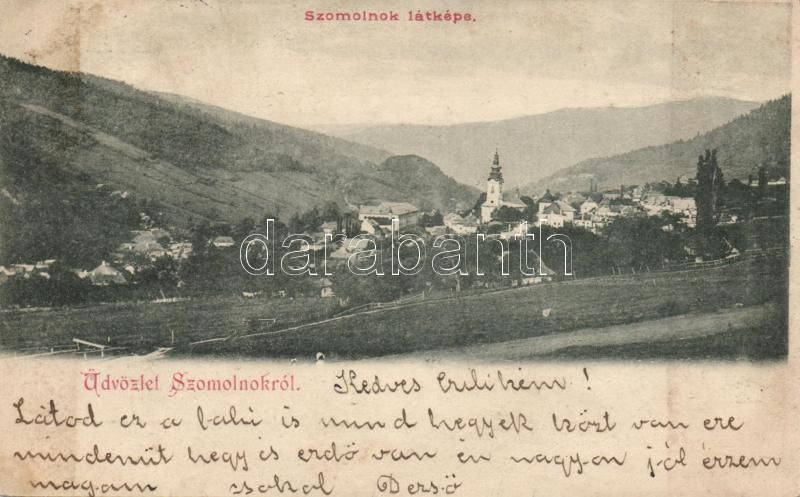 Szomolnok látképe.
darabanth
Üdvözlet Szomolnokról.
Kedves Czilikém !
Látod ez a falu is mind hegyek közt van ere
mindenüt hegy is erdö van én nagy-on jól érzem
magam csokol Dersö